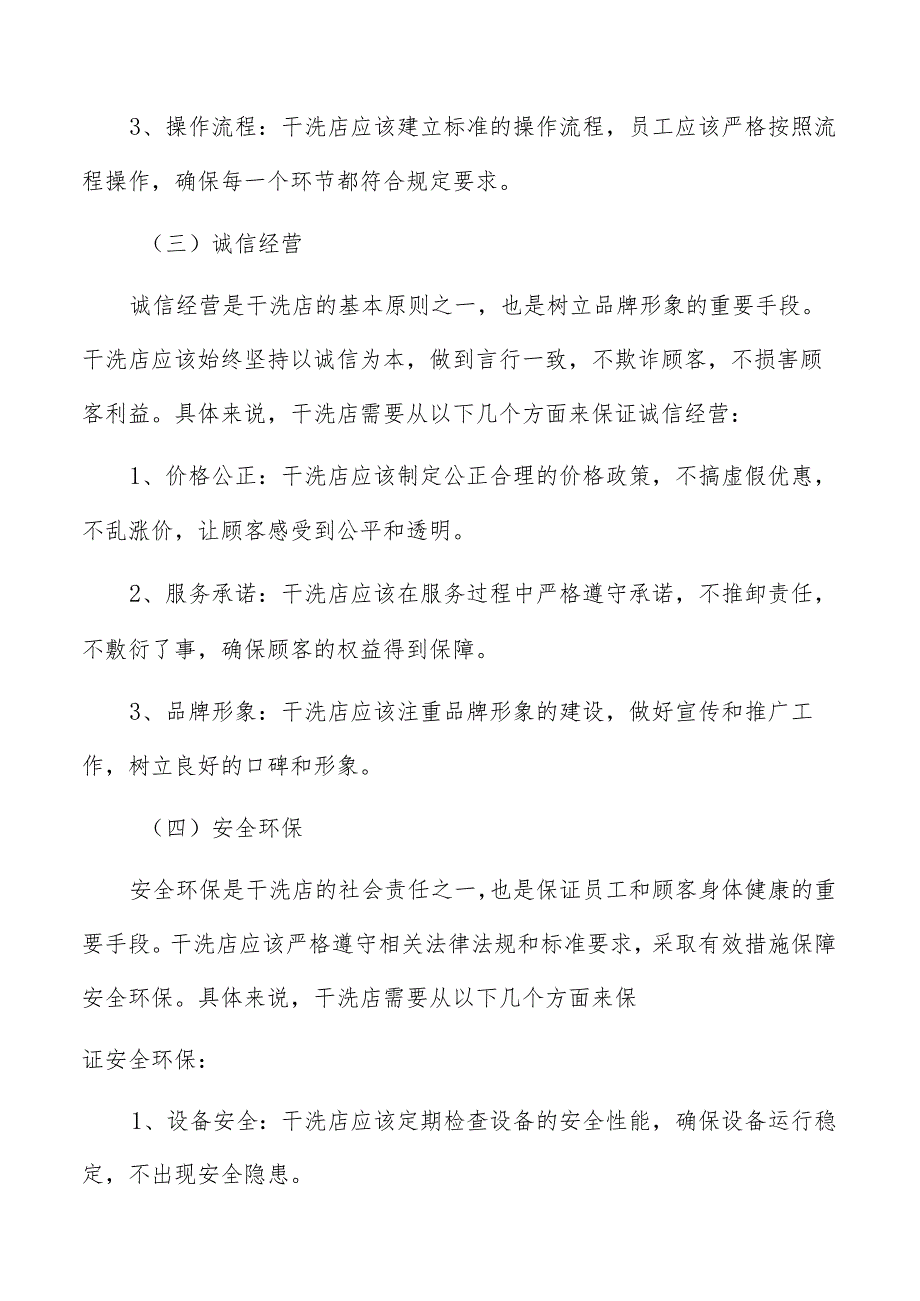 3、操作流程：干洗店应该建立标准的操作流程，员工应该严格按照流
程操作，确保每一个环节都符合规定要求。
（三）诚信经营
诚信经营是干洗店的基本原则之一，也是树立品牌形象的重要手段。
干洗店应该始终坚持以诚信为本，做到言行一致，不欺诈顾客，不损害顾
客利益。具体来说，干洗店需要从以下几个方面来保证诚信经营：
1、价格公正：干洗店应该制定公正合理的价格政策，不搞虚假优惠，
不乱涨价，让顾客感受到公平和透明。
2、服务承诺：干洗店应该在服务过程中严格遵守承诺，不推卸责任，
不敷衍了事，确保顾客的权益得到保障。
3、品牌形象：干洗店应该注重品牌形象的建设，做好宣传和推广工
作，树立良好的口碑和形象。
（四）安全环保
安全环保是干洗店的社会责任之一，也是保证员工和顾客身体健康的重
要手段。干洗店应该严格遵守相关法律法规和标准要求，采取有效措施保障
安全环保。具体来说，干洗店需要从以下几个方面来保
证安全环保：
1、设备安全：干洗店应该定期检查设备的安全性能，确保设备运行稳
定，不出现安全隐患。